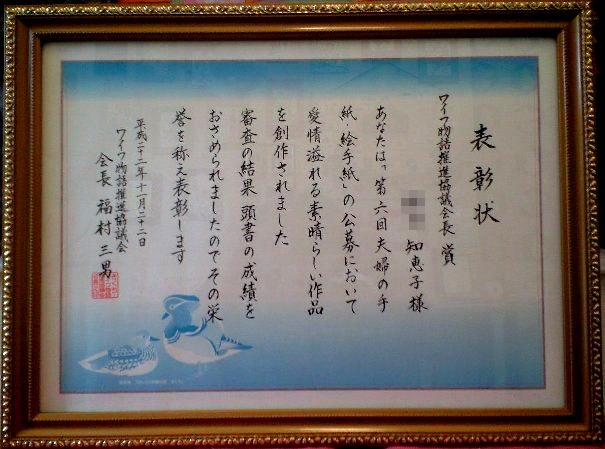 表彰状
ワイフ物語推進協議会長賞
知恵子様
あなたは、「第六回夫婦の手
紙・絵手紙」の公募において
愛情溢れる素晴らしい作品
を創作されました
審査の結果頭書の成績を
おさめられましたのでその栄
誉を称え表彰します
平成二十二年十一月二十二日
ワイフ物語推進協議会
会長 福村三男